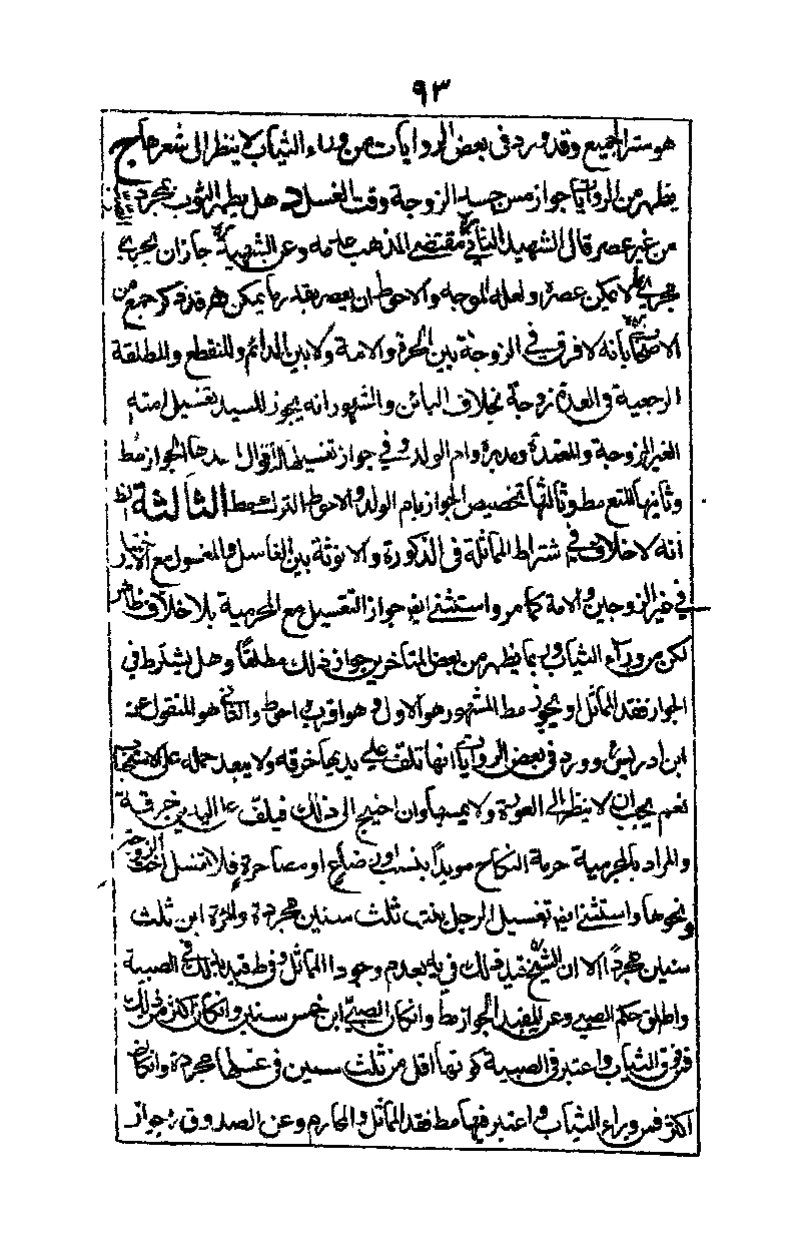 ٩٣
هو ستر الجميع وقد ورد فى بعض الروايات من وراء الثياب لا ينظر الى شعرها ج
يظهر من الروايات جواز مس جسد الزوجة وقت الغسل د هل يطهر الثوب بمجرد
من غير عصر قال الشهيد الثانى مقتضى المذهب عدمه وعن الشهيد جاز ان يجرى
مجرى ما لا يمكن عصره ولعله الموجه والاحوط ان يعصر بقدر ما يمكن هـ قد ذكر جمع من
الاصحاب بانه لا فرق فى الزوجة بين الحرة والامة ولا بين الدائم والمنقطع والمطلقة
الرجعية فى العدة زوجة بخلاف البائن والمشهور انه يجوز للسيد تغسيل امته
الغير المزوجة والمعتدة ومدبره وام الولد و فى جواز تغسيلها اقوال احدها الجواز مط
وثانيها المنع مط وثالثها تخصيص الجواز بام الولد والاحوط الترك مط الثالثة
انه لا خلاف فى اشتراط المماثلة فى الذكورة والانوثة بين الغاسل والمغسول مع الاختيار
فى غير الزوجين والامة كما مر واستثنى ايض جواز التغسيل مع المحرمية بلا خلاف ظاهر
لكن من وراء الثياب وربما يظهر من بعض المتاخرين جواز ذلك مطلقا وهل يشترط فى
الجواز فقد المماثل او يجوز مط المشهور هو الاول و هو اقرب احوط والثانى هو المنقول عن
ابن ادريس وورد فى بعض الروايات انها تلف على يديها خرقه ولا يبعد حمله على الاستحباب
نعم يجب ان لا ينظر الى العورة ولا يمسها وان احتيج الى ذلك فيلف على اليدين خرقة
والمراد بالمحرمية حرمة النكاح مؤبدا بنسب او رضاع او مصاهرة فلا تغسل اخت الزوجة
ونحوها واستثنى ايض تغسيل الرجل بنت ثلث سنين مجردة والمرءة ابن ثلث
سنين مجردا الا ان الشيخ قيد ذلك فى يه بعدم وجود المماثل و فى ط قيد بذلك فى الصبية
واطلق حكم الصبى وعن المفيد الجواز مط وان كان الصبى ابن خمس سنين وان كان اكثر من ذلك
فمن فوق الثياب واعتبر فى الصبية كونها اقل من ثلث سنين فى غسلها مجردة وان كان
اكثر فمن وراء الثياب و اعتبر فيها مط فقد المماثل والمحارم وعن الصدوق جواز